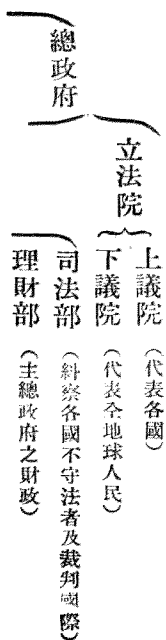 總政府
立法院
上議院（代表各國）
下議院（代表全地球人民）
司法部（糾察各國不守法者及裁判國際）
理財部（主總政府之財政）